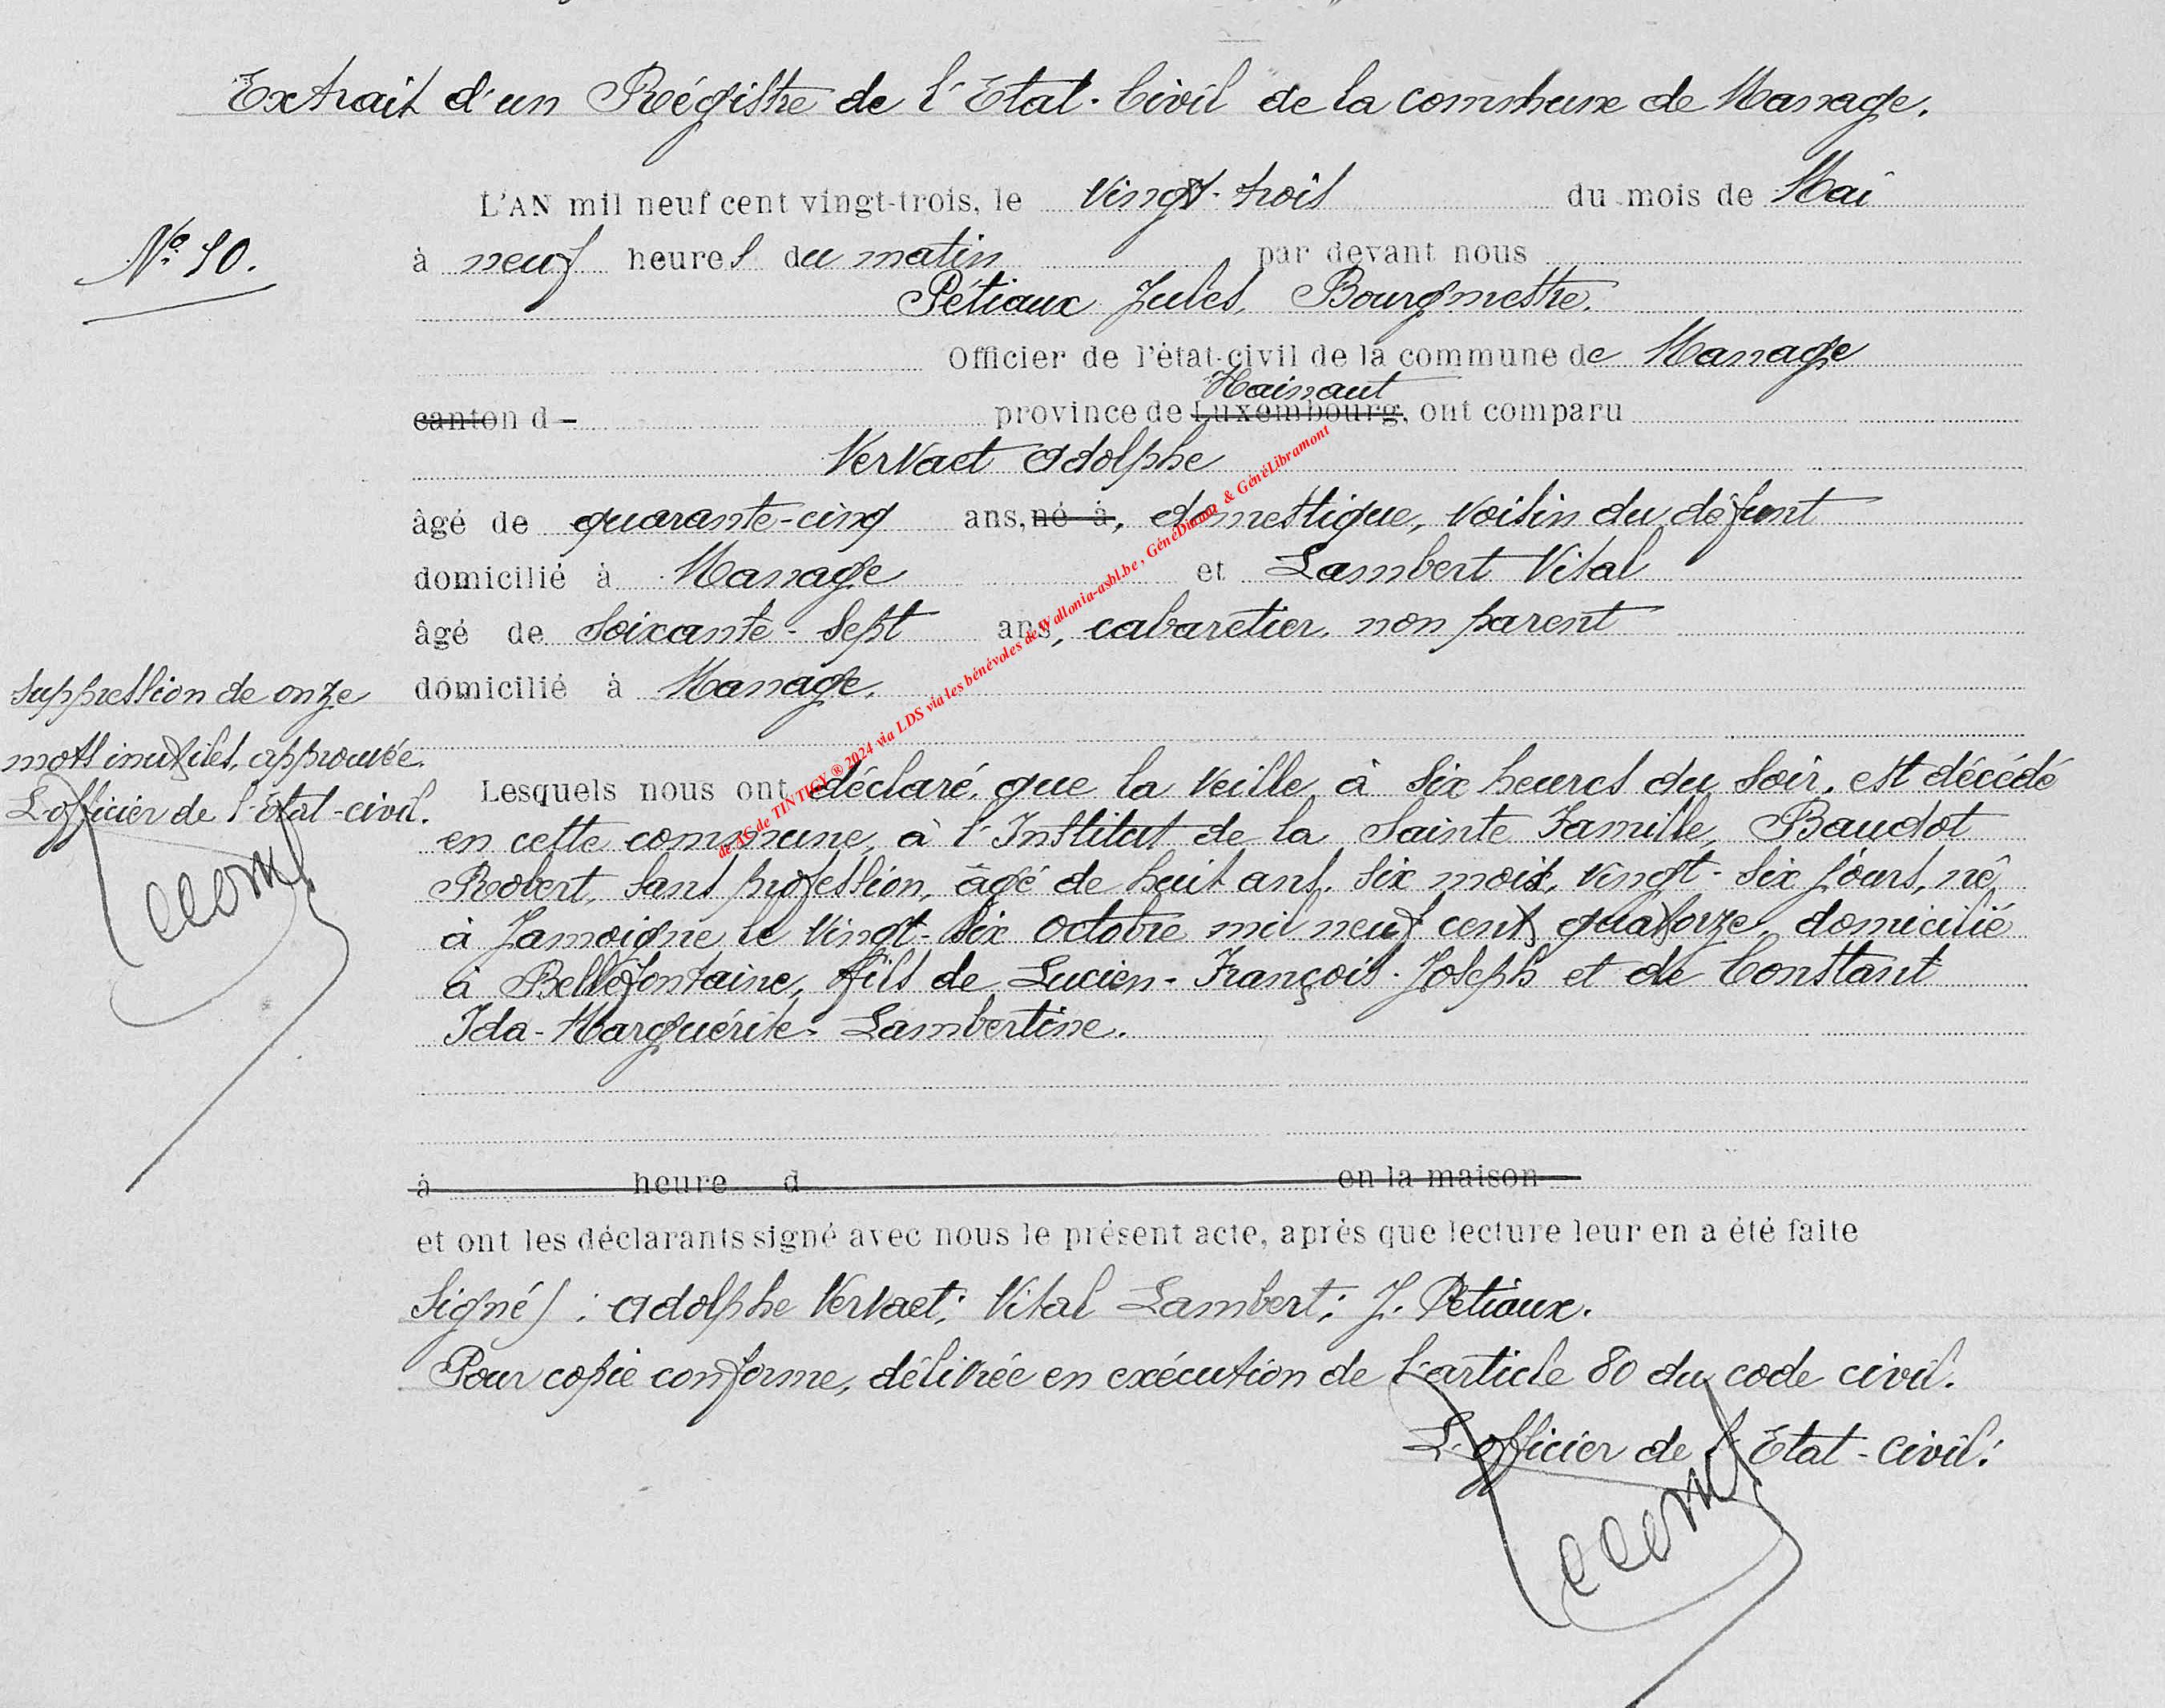 Extrait d'un Régistre de l'Etat-Civil de la commune de Manage.
L'AN mil neuf cent vingt-trois, le Vingt-trois du mois de Mai
N° 10.
à neuf heures du matin par devant nous
Pétiaux Jules, Bourgmestre.
Officier de l'état-civil de la commune de Manage
Hainaut
canton d - province de Luxembourg, ont comparu
Vervaet Adolphe
âgé de quarante-cinq ans, né à, domestique, voisin du défunt
domicilié à Manage et Lambert Vital
âgé de soixante-sept ans, cabaretier, non parent
domicilié à Manage.
Suppression de onze
mots inutiles, approuvée.
L'officier de l'Etat-civil.
Lesquels nous ont déclaré, que la veille, à six heures du soir, est décédé
en cette commune, à l'Institut de la Sainte Famille, Baudot
Robert, sans profession, âgé de huit ans, six mois, vingt-six jours, né
à Jamoigne le vingt-six octobre mil neuf cent quatorze, domicilié
à Bellefontaine, fils de Lucien-François-Joseph et de Constant
Ida-Marguérite-Lambertine.
à heure d en la maison
et ont les déclarants signé avec nous le présent acte, après que lecture leur en a été faite
Signés : Adolphe Vervaet; Vital Lambert; J. Petiaux.
Pour copie conforme, délivrée en exécution de l'article 80 du code civil.
L'officier de l'Etat-Civil:
de AC de TINTIGY ® 2024 via LDS via les bénévoles de Wallonia-asbl.be, GénéDinant & GénéLibramont